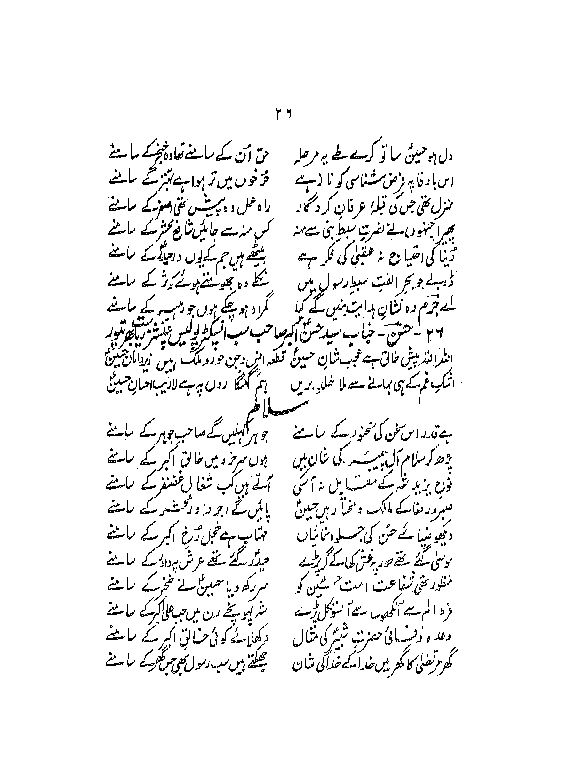 ۲۶
دل ہو حسینؑ سا تو کرے طے یہ مرحلہ حق اُن کے سامنے تھا وہ خنجر کے سامنے
اس بار فا پہ فرض شناسی کو ناز ہے خوں میں تر ہوا ہے کے سامنے
منزل تھی جس کی قبلۂ عرفانِ کردگار راہِ عمل وہ پیش تھی کے سامنے
پھیرا جنہوں نے نصرتِ سبطِ نبی سے منہ کس منہ سے جائیں شافعِ محشر کے سامنے
دُنیا کی احتیاج نہ عقبیٰ کی فکر ہے بیٹھے ہیں جم کے یوں درِ حیدرؑ کے سامنے
ڈوبے جو بحرِ الفتِ سبطِ رسول میں نکلے وہ پھولتے ہوئے کوثر کے سامنے
اے خرم وہ نشانِ ہدایت بنیں گے کیا گمراہ ہو چکے ہوں جو رہبر کے سامنے
۲۶ - حسنؔ - جناب سید حسن اکبر صاحب سب انسپکٹر پولیس
اظہر اللہ پیش خالق ہے عجب شانِ حسینؑ قطعہ انس و جن حور و ملک ہیں زیر دامانِ حسینؑ
اشکِ غم کے ہی بہانے سے ملا خلدِ بریں ہم گنہگاروں پہ ہے لاریب احسانِ حسینؑ
سلام
ہے قدر اس سخن کی سخنور کے سامنے جوہر کھلیں گے صاحبِ جوہر کے سامنے
پڑھ کر سلام آلِ پیمبر کی شان میں ہوں سرخرو میں خالقِ اکبر کے سامنے
فوجِ یزید شہ کے مقابل نہ آ سکی آتے ہیں کب شغال غضنفر کے سامنے
صبر و رضا کے مالک و مختار ہیں حسینؑ پائیں گے اجر داورِ محشر کے سامنے
دیکھو ضیائے حسن کی جلوہ نمائیاں مہتاب ہے خجل رُخِ اکبر کے سامنے
موسیٰ گئے تھے طور پہ غش کھا کے گر پڑے حیدرؑ گئے تھے عرش پہ داور کے سامنے
منظور تھی شفاعتِ امت حسینؑ کو سر رکھ دیا حسینؑ نے خنجر کے سامنے
فرطِ الم سے آنکھوں سے آنسو نکل پڑے شہ پہونچے رن میں جب علی اکبر کے سامنے
وعدہ وفائی حضرتِ شبیرؑ کی مثال دکھلائے کوئی خالقِ اکبر کے سامنے
گھر مرتضیٰ کا گھر ہیں خدا کے خدا کی شان جھکتے ہیں سب رسول بھی جس گھر کے سامنے